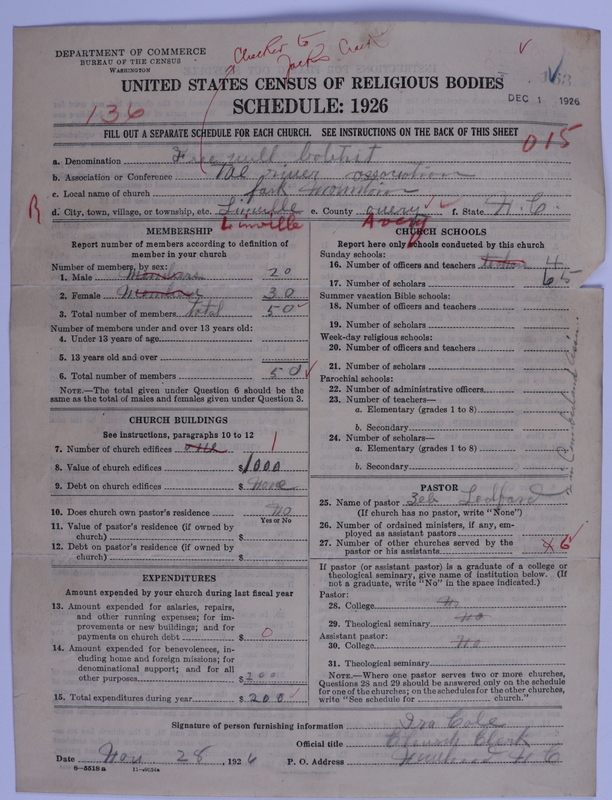 DEPARTMENT OF COMMERCE
BUREAU OF THE CENSUS
WASHINGTON
Checked to
Jacks Creek
UNITED STATES CENSUS OF RELIGIOUS BODIES
SCHEDULE: 1926
DEC 1 1926
136
FILL OUT A SEPARATE SCHEDULE FOR EACH CHURCH. SEE INSTRUCTIONS ON THE BACK OF THIS SHEET
015
a. Denomination Freewill babtist
b. Association or Conference river association
c. Local name of church fark mountain
R d. City, town, village, or township, etc. Linville e. County avery f. State N. C.
Linville Avery
MEMBERSHIP
Report number of members according to definition of
member in your church
Number of members, by sex:
1. Male 20
2. Female 30
3. Total number of members total 50
Number of members under and over 13 years old:
4. Under 13 years of age
5. 13 years old and over
6. Total number of members 50
NOTE.—The total given under Question 6 should be
same as the total of males and females given under Question 3.
CHURCH BUILDINGS
See instructions, paragraphs 10 to 12
7. Number of church edifices one 1
8. Value of church edifices $1000
9. Debt on church edifices $ None
10. Does church own pastor's residence no
Yes or No
11. Value of pastor's residence (if owned by
church) $
12. Debt on pastor's residence (if owned by
church) $
EXPENDITURES
Amount expended by your church during last fiscal year
13. Amount expended for salaries, repairs,
and other running expenses; for im-
provements or new buildings; and for
payments on church debt $ 0
14. Amount expended for benevolences, in-
cluding home and foreign missions; for
denominational support; and for all
other purposes $ 200
15. Total expenditures during year $ 200
CHURCH SCHOOLS
Report here only schools conducted by this church
Sunday schools:
16. Number of officers and teachers 4
17. Number of scholars 65
Summer vacation Bible schools:
18. Number of officers and teachers
19. Number of scholars
Week-day religious schools:
20. Number of officers and teachers
21. Number of scholars
Parochial schools:
22. Number of administrative officers
23. Number of teachers—
a. Elementary (grades 1 to 8)
b. Secondary
24. Number of scholars—
a. Elementary (grades 1 to 8)
b. Secondary
PASTOR
25. Name of pastor Zeb Ledford
(If church has no pastor, write "None")
26. Number of ordained ministers, if any, em-
ployed as assistant pastors
27. Number of other churches served by the
pastor or his assistants 6
If pastor (or assistant pastor) is a graduate of a college or
theological seminary, give name of institution below. (If
not a graduate, write "No" in the space indicated.)
Pastor:
28. College No
29. Theological seminary No
Assistant pastor:
30. College No
31. Theological seminary
NOTE.—Where one pastor serves two or more churches,
Questions 28 and 29 should be answered only on the schedule
for one of the churches; on the schedules for the other churches,
write "See schedule for church."
Signature of person furnishing information Ira Cole
Official title Church Clerk
Date Nov 28, 1926 P. O. Address Newland N C
8-5518a